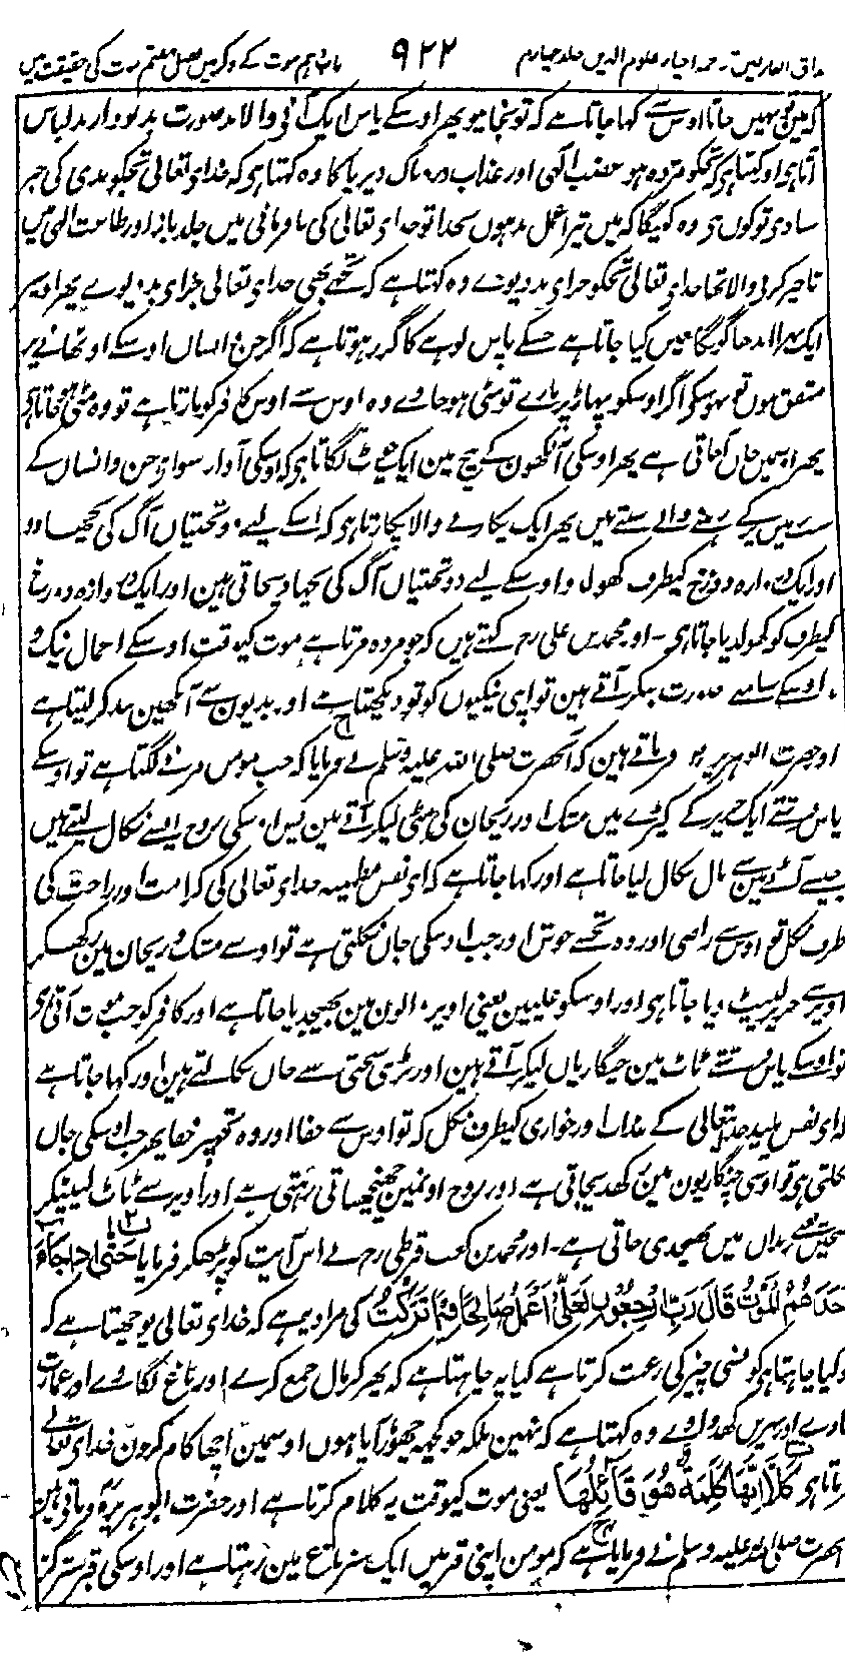 مذاق العارفین ترجمہ احیاء علوم الدین جلد چہارم ۹۲۲ باب دہم موت کے ذکر میں فصل ہفتم موت کی حقیقت میں
کہ مین نہیں جانتا اوس سے کہا جاتا ہے کہ تو نجانیو پھر اوسکے پاس ایک آنی والا بد صورت بدبودار بد لباس
آتا ہی اور کہتا ہی کہ تجکو مژدہ ہو غضب الٰہی اور عذاب دردناک دیرپا کا وہ کہتا ہی کہ خدای تعالیٰ تجکو بدی کی خبر
سنادی تو کون ہی وہ کہیگا کہ میں تیرا عمل بد ہوں بخدا تو خدای تعالیٰ کی نافرمانی میں جلد باز اور طاعت الٰہی میں
تاخیر کرنی والا تھا خدای تعالیٰ تجکو جزای بد دیوے وہ کہتا ہے کہ تجھے بھی خدای تعالیٰ جزای بد دیوے پھر اوسپر
ایک بہرا اندھا گونگا معین کیا جاتا ہے جسکے پاس لوہے کا گرز ہوتا ہے کہ اگر جن و انسان اوسکے اوٹھانے پر
متفق ہوں تو نہو سکی اگر اوسکو پہاڑ پر مارے تو مٹی ہو جاوے وہ اوس سے اوس کافر کو مارتا ہے تو وہ مٹی ہو جاتا ہی
پھر اوسمیں جان آجاتی ہے پھر اوسکی آنکھون کے بیچ مین ایک چوٹ لگاتا ہی کہ اوسکی آواز سوای جن و انسان کے
سب زمیں کے رہنے والے سنتے ہیں پھر ایک پکارنے والا پکارتا ہی کہ اسکے لیے دو تختیاں آگ کی بچھا دو
اور ایک دروازہ دوزخ کیطرف کھول دو اوسکے لیے دو تختیاں آگ کی بچھا دیجاتی ہین اور ایک دروازہ دوزخ
کیطرف کو کھولدیا جاتا ہی۔ اور محمد بن علی رح کہتے ہیں کہ جو مردہ مرتا ہے موت کیوقت اوسکے اعمال نیک و
بد اوسکے سامنے صورت بنکر آتے ہین تو اپنی نیکیوں کو تو دیکھتا ہے اور بدیون سے آنکھین بند کر لیتا ہے
اور حضرت ابو ہریرہ فرماتے ہین کہ آنحضرت صلی اللہ علیہ وسلم نے فرمایا کہ جب مومن مرنے لگتا ہے تو اوسکے
پاس فرشتے ایک حریر کے کپڑے میں مشک اور ریحان کی مٹھی لیکر آتے ہین پس اوسکی روح ایسے نکال لیتے ہیں
جیسے آٹے مین سے بال نکال لیا جاتا ہے اور کہا جاتا ہے کہ ای نفس مطمینہ خدای تعالیٰ کی کرامت اور راحت کی
طرف نکل تو اوس سے راضی اور وہ تجھسے خوش اور جب اوسکی جان نکلتی ہے تو اوسے مشک و ریحان مین رکھکر
اوپر سے حریر لپیٹ دیا جاتا ہی اور اوسکو علیین یعنی اوپر والون مین بھیجدیا جاتا ہے اور کافر کو جب موت آتی ہی
تو اوسکے پاس فرشتے ٹاٹ مین چنگاریاں لیکر آتے ہین اور بڑی سختی سے جان نکالتے ہین اور کہا جاتا ہے
کہ ای نفس پلید خدای تعالیٰ کے عذاب اور خواری کیطرف نکل کہ تو اوس سے خفا اور وہ تجھپر خفا پھر جب اوسکی جان
نکلتی ہی تو اوسی چنگاریون مین رکھدیجاتی ہے اور روح اونمین جھنجھناتی رہتی ہے اور اوپر سے ٹاٹ لپیٹکر
سجین یعنی زنداں میں بھیجدی جاتی ہے۔ اور محمد بن کعب قرظی رح نے اس آیت کو پڑھکر فرمایا حَتّٰی اِذَا جَآءَ
اَحَدَهُمُ الْمَوْتُ قَالَ رَبِّ ارْجِعُوْنِ لَعَلِّیْ اَعْمَلُ صَالِحًا فِیْمَا تَرَكْتُ کی مراد یہ ہے کہ خدای تعالیٰ پوچھتا ہے کہ
تو کیا چاہتا ہی کونسی چیز کی رغبت کرتا ہے کیا یہ چاہتا ہے کہ پھر کر مال جمع کرے اور باغ لگاوے اور عمارت
بناوے اور نہریں کھدواوے وہ کہتا ہے کہ نہین بلکہ جو کچھ چھوڑ آیا ہوں اوسمین اچھا کام کرون خدای تعالیٰ
فرماتا ہی كَلَّا اِنَّهَا كَلِمَةٌ هُوَ قَآئِلُهَا یعنی موت کیوقت یہ کلام کرتا ہے اور حضرت ابو ہریرہ فرماتے ہین
آنحضرت صلی اللہ علیہ وسلم نے فرمایا ہے کہ مومن اپنی قبر میں ایک سبز باغ مین رہتا ہے اور اوسکی قبر ستر گز